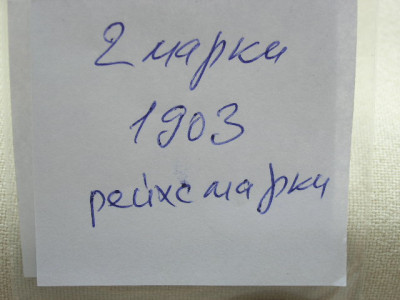 2 марки
1903
рейхсмарки